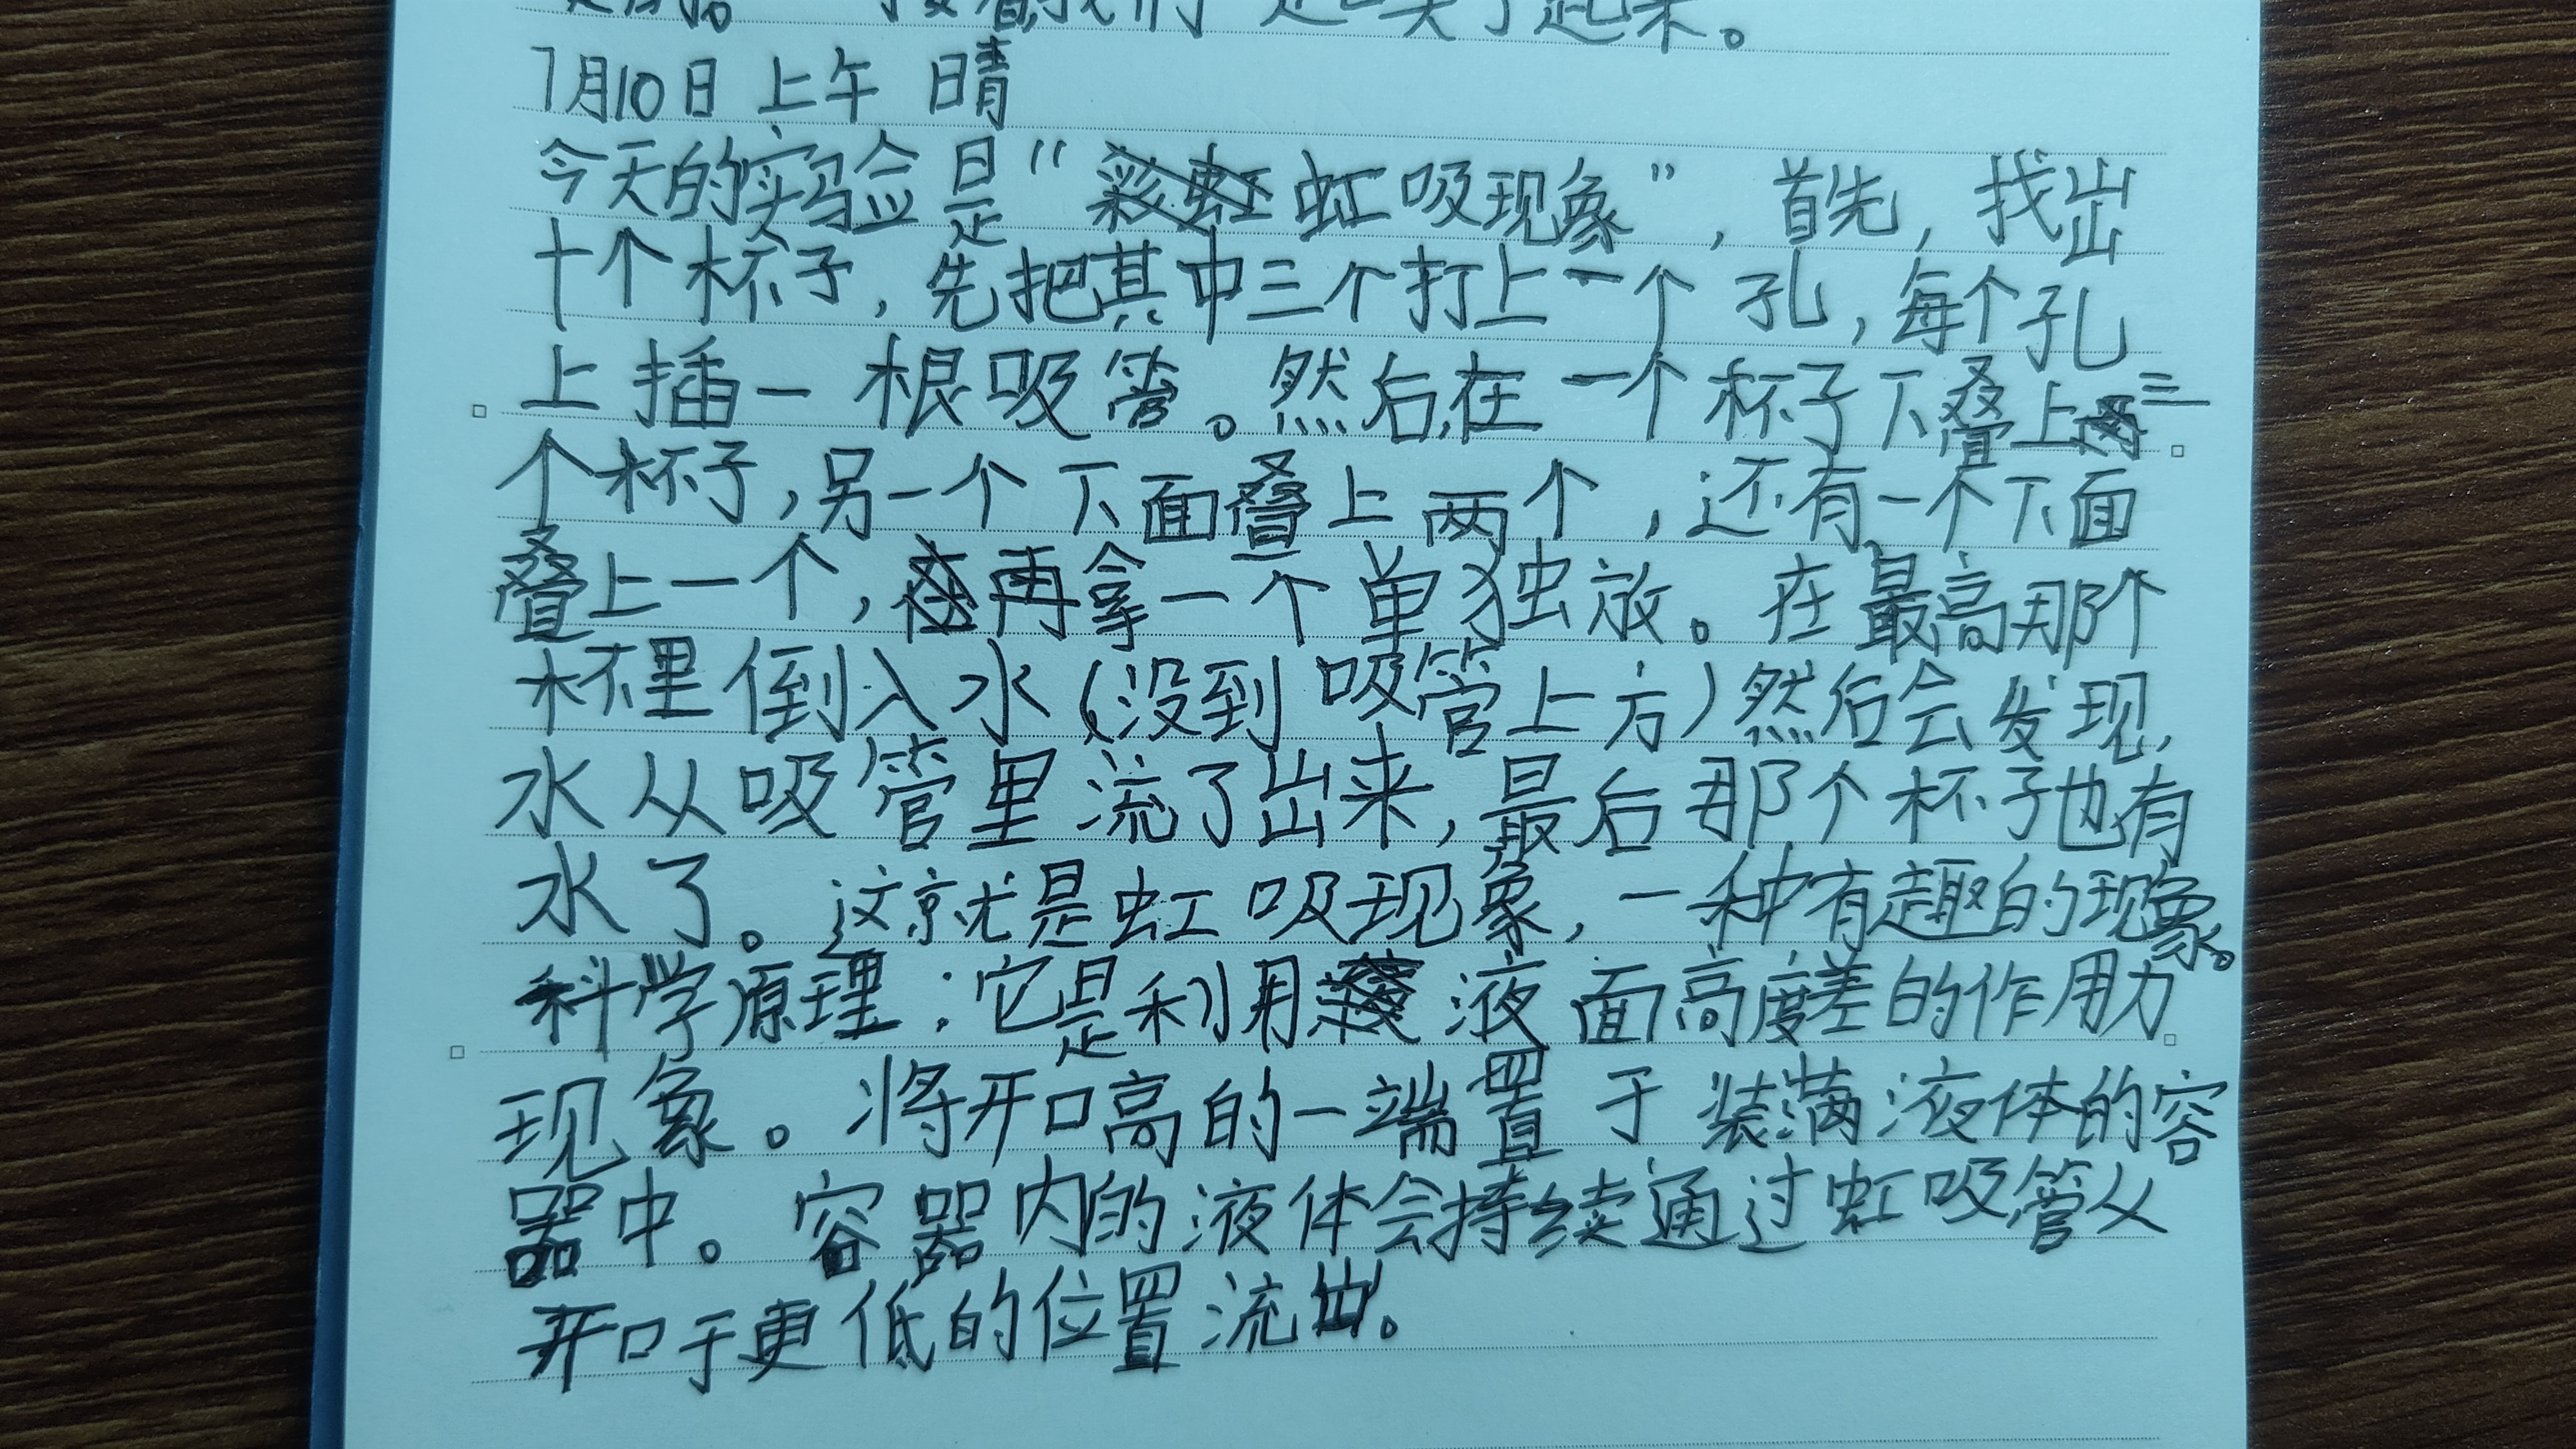 接着我们 一笑了起来。
7月10日 上午 晴
今天的实验是“虹吸现象”,首先,找出
十个杯子,先把其中三个打上一个孔,每个孔
上插一根吸管。然后在一个杯子下叠上三
个杯子,另一个下面叠上两个,还有一个下面
叠上一个,再拿一个单独放。在最高那个
杯里倒入水(没到吸管上方)然后会发现,
水从吸管里流了出来,最后那个杯子也有
水了。这就是虹吸现象,一种有趣的现象。
科学原理:它是利用液面高度差的作用力
现象。将开口高的一端置于装满液体的容
器中。容器内的液体会持续通过虹吸管从
开口于更低的位置流出。